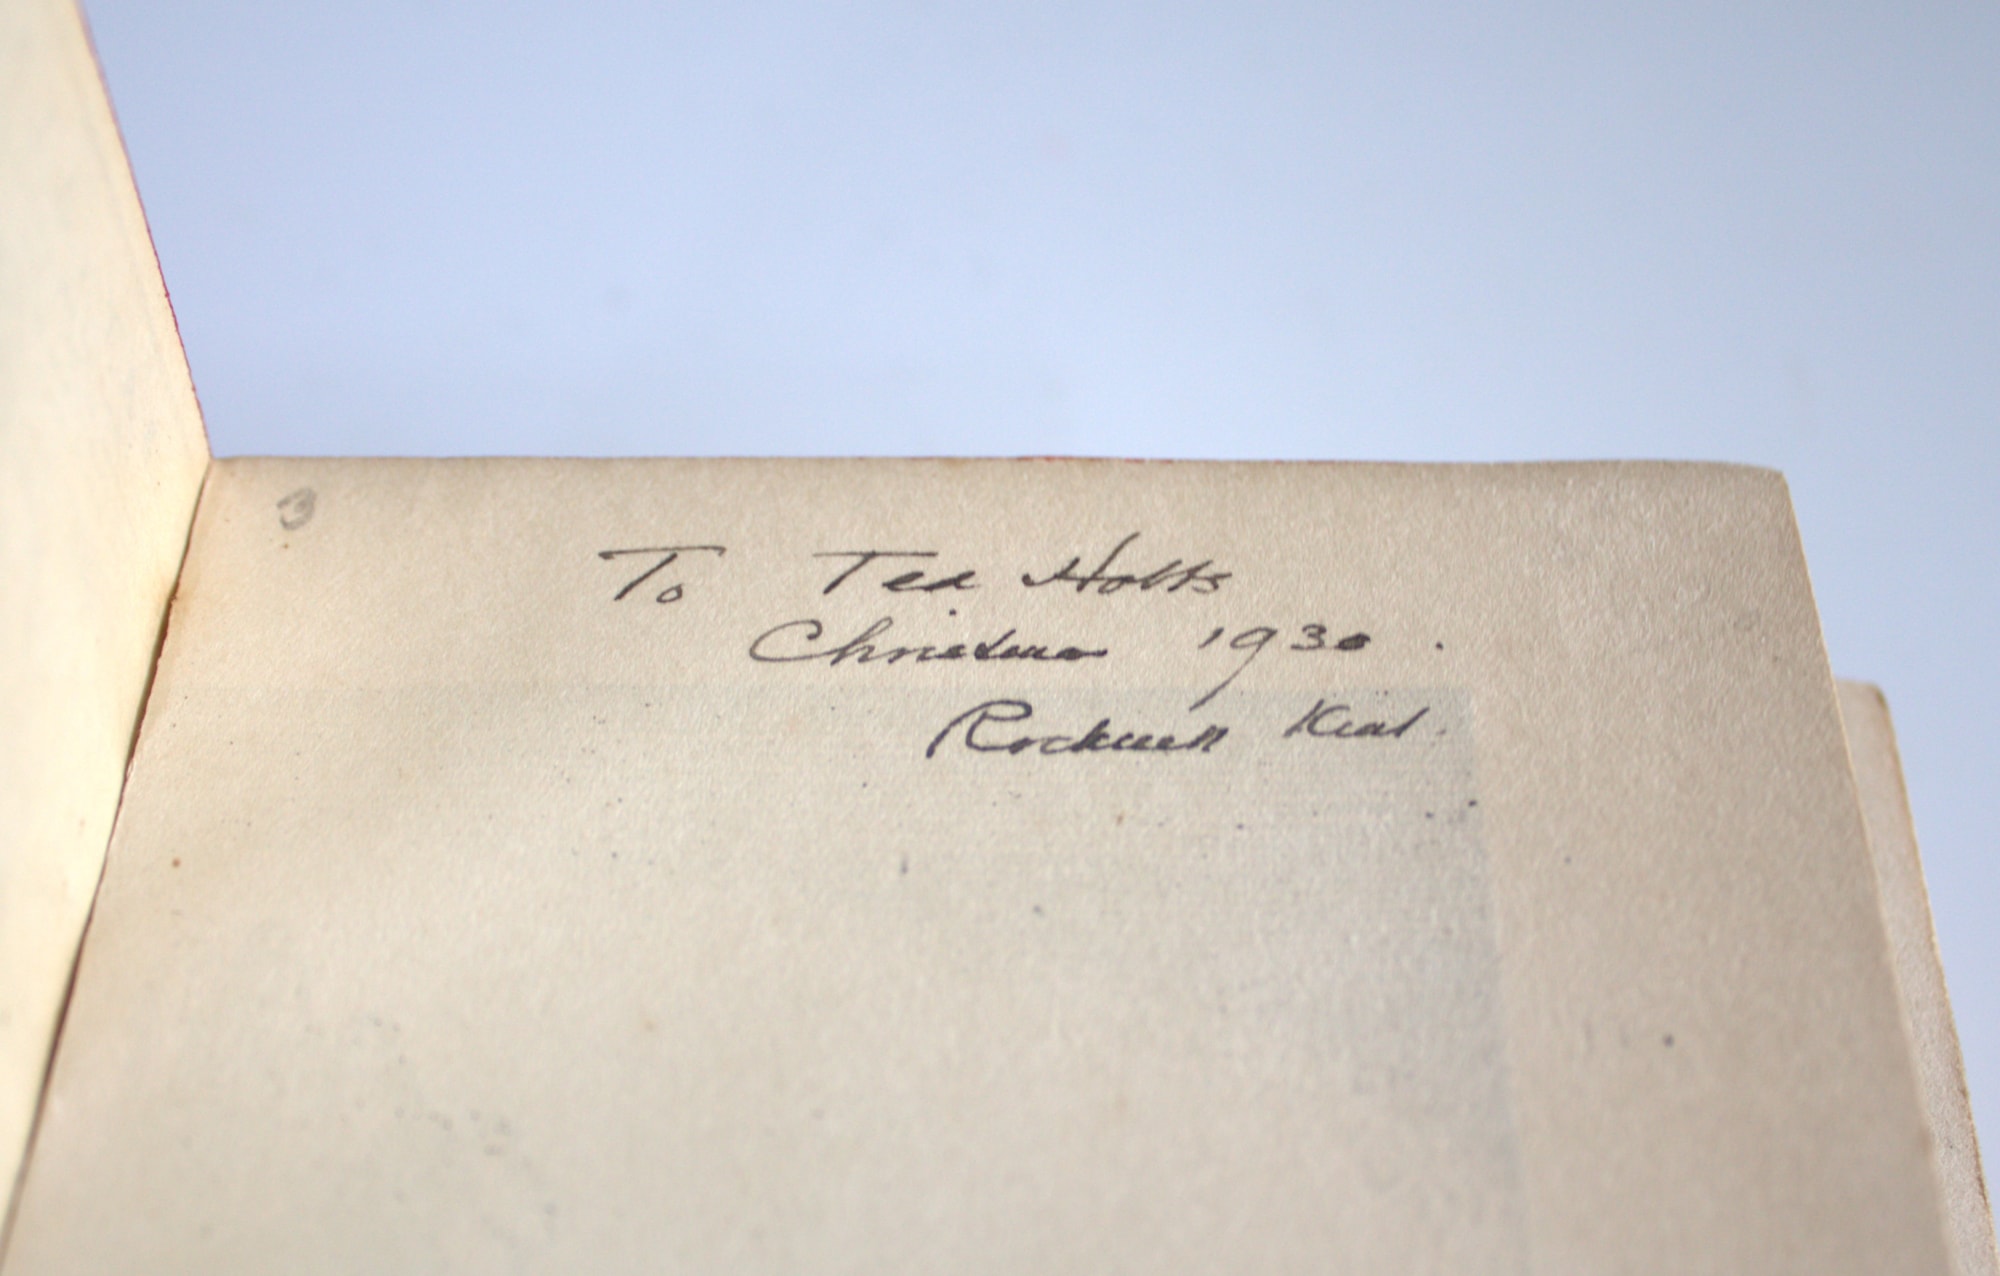 3
To Ted Holts
Christmas 1930.
Rockwell Kent.